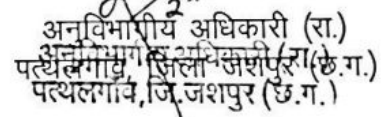 अनुविभागीय अधिकारी (रा.)
अनुविभागीय अधिकारी (रा.)
पत्थलगांव, जिला जशपुर (छ.ग.)
पत्थलगांव,जि.जशपुर (छ.ग.)